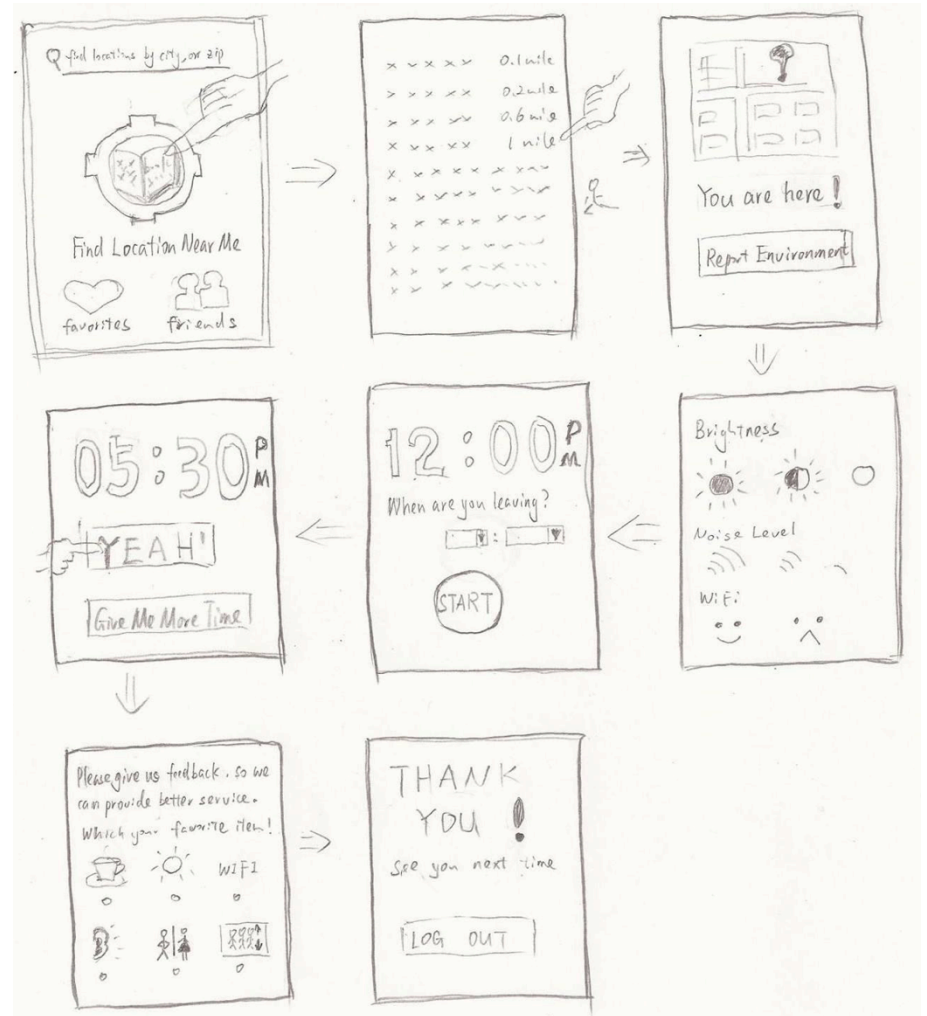 find locations by city, or zip
Find Location Near Me
favorites friends
x x x x x 0.1 mile
x x x x x 0.2 mile
x x x x x 0.6 mile
x x x x x 1 mile
You are here!
Report Environment
Brightness
Noise Level
WiFi
12:00 PM
When are you leaving?
:
START
05:30 PM
YEAH!
Give Me More Time
Please give us feedback. so we
can provide better service.
Which your favorite item!
WIFI
THANK
YOU!
See you next time
LOG OUT